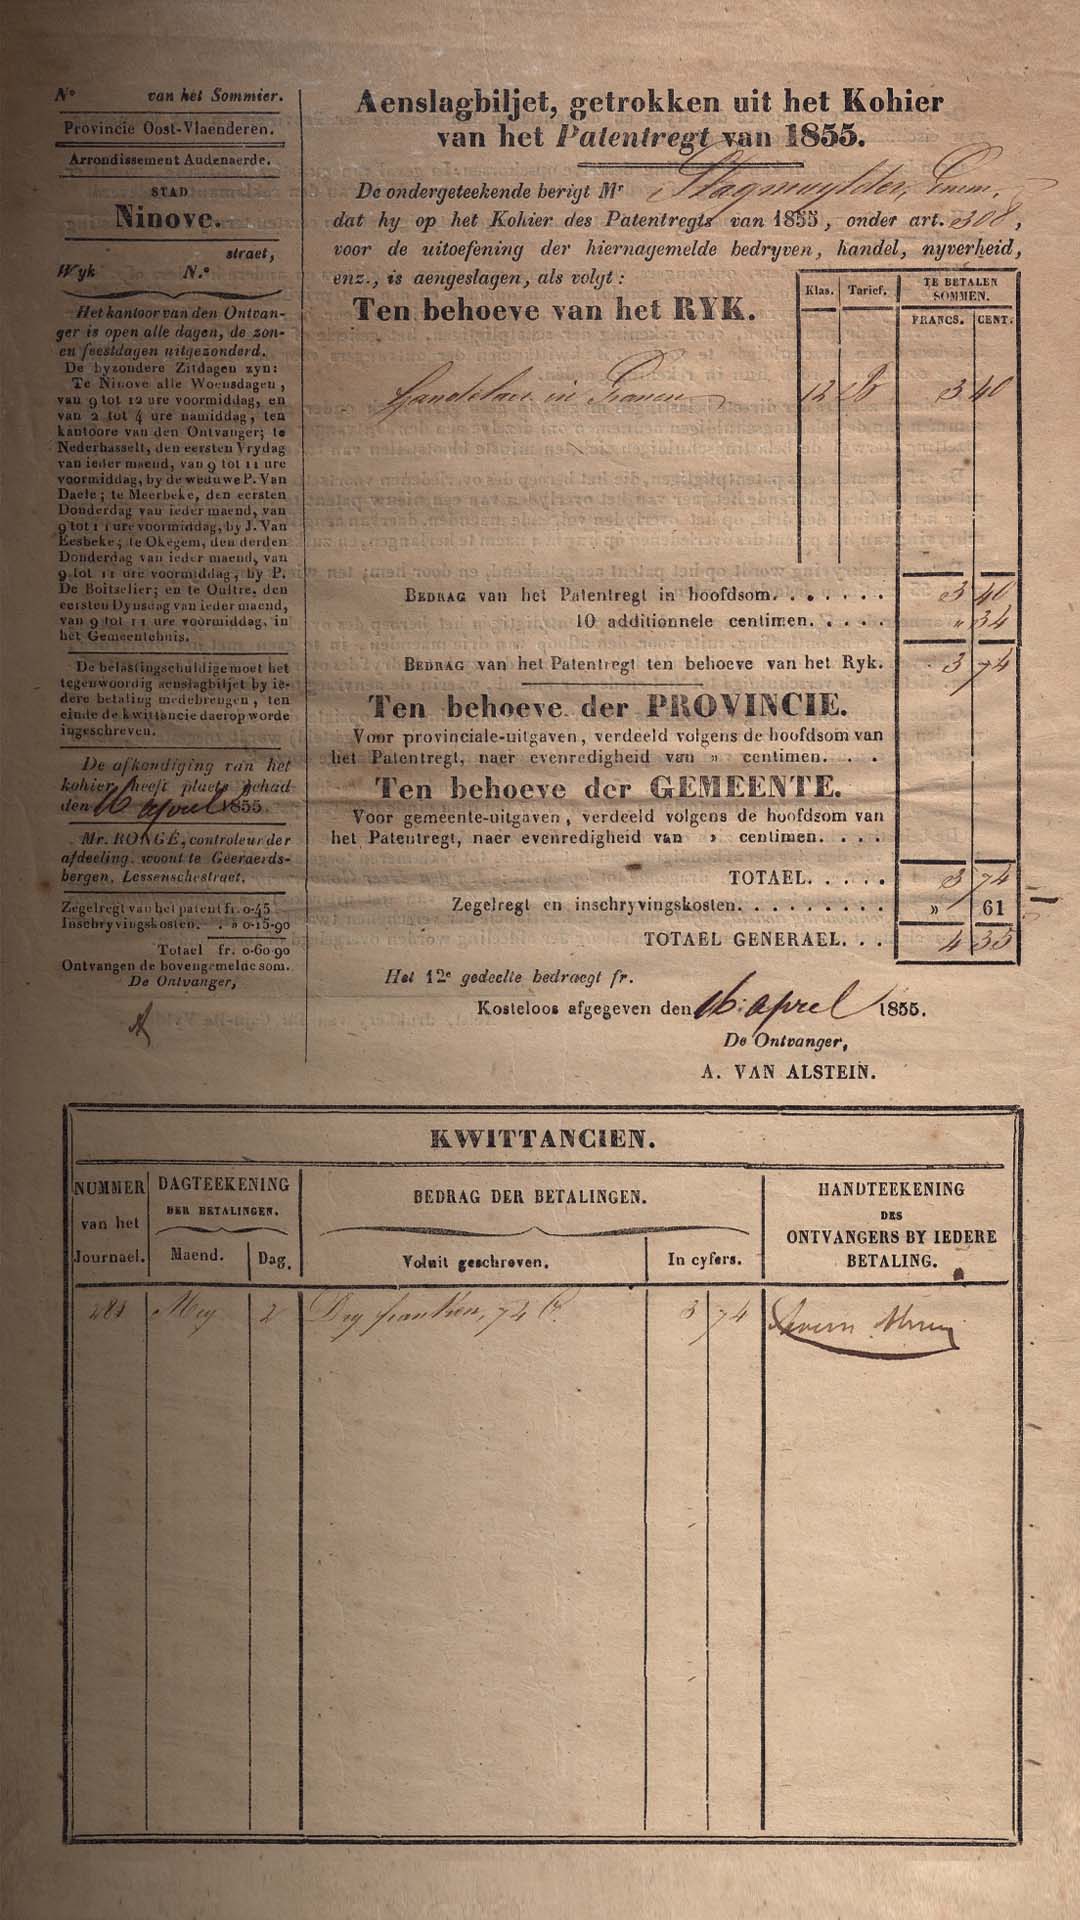 N° van het Sommier.
Provincie Oost-Vlaenderen.
Arrondissement Audenaerde.
STAD
Ninove.
straet,
Wyk N.°
Het kantoor van den Ontvan-
ger is open alle dagen, de zon-
en feestdagen uitgezonderd.
De byzondere Zitdagen zyn:
Te Ninove alle Woensdagen,
van 9 tot 12 ure voormiddag, en
van 2 tot 4 ure namiddag, ten
kantoore van den Ontvanger; te
Nederhasselt, den eersten Vrydag
van ieder maend, van 9 tot 11 ure
voormiddag, by de weduwe P. Van
Daele; te Meerbeke, den eersten
Donderdag van ieder maend, van
9 tot 11 ure voormiddag, by J. Van
Eesbeke; te Okegem, den derden
Donderdag van ieder maend, van
9 tot 11 ure voormiddag, by P.
De Boitselier; en te Oultre, den
eersten Dynsdag van ieder maend,
van 9 tot 11 ure voormiddag, in
het Gemeentehuis.
De belastingschuldige moet het
tegenwoordig aenslagbiljet by ie-
dere betaling medebrengen, ten
einde de kwittancie daerop worde
ingeschreven.
De afkondiging van het
kohier heeft plaets gehad
den 16 april 1855.
Mr. RONGÉ, controleur der
afdeeling, woont te Geeraerds-
bergen, Lessenschestraet.
Zegelregt van het patent fr. 0-45
Inschryvingskosten. . » 0-15-90
Totael fr. 0-60-90
Ontvangen de bovengemelde som.
De Ontvanger,
Aenslagbiljet, getrokken uit het Kohier
van het Patentregt van 1855.
De ondergeteekende berigt Mr
dat hy op het Kohier des Patentregts van 1855, onder art. 308,
voor de uitoefening der hiernagemelde bedryven, handel, nyverheid,
enz., is aengeslagen, als volgt:
Klas. Tarief. TE BETALEN SOMMEN.
FRANCS. CENT.
Ten behoeve van het RYK.
in 12 3 40
BEDRAG van het Patentregt in hoofdsom. . . . . . . 3 40
10 additionnele centimen. . . . . » 34
BEDRAG van het Patentregt ten behoeve van het Ryk. 3 74
Ten behoeve der PROVINCIE.
Voor provinciale-uitgaven, verdeeld volgens de hoofdsom van
het Patentregt, naer evenredigheid van » centimen. . .
Ten behoeve der GEMEENTE.
Voor gemeente-uitgaven, verdeeld volgens de hoofdsom van
het Patentregt, naer evenredigheid van » centimen. . . .
TOTAEL. . . . . 3 74
Zegelregt en inschryvingskosten. . . . . . . . . » 61
TOTAEL GENERAEL. . . 4 35
Het 12e gedeelte bedraegt fr.
Kosteloos afgegeven den 16 april 1855.
De Ontvanger,
A. VAN ALSTEIN.
KWITTANCIEN.
NUMMER van het Journael.
DAGTEEKENING DER BETALINGEN.
Maend. Dag.
BEDRAG DER BETALINGEN.
Voluit geschreven. In cyfers.
HANDTEEKENING
DES
ONTVANGERS BY IEDERE
BETALING.
281 Mey 2 Dry franken, 74 C. 3 74